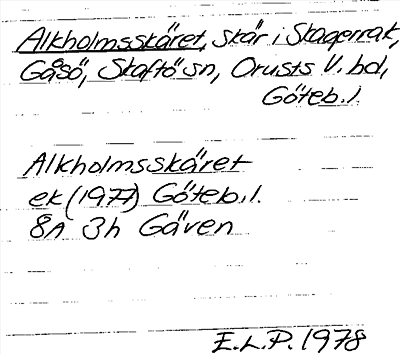 Alkholmsskäret, skär i Skagerrak,
Gåsö, Skaftö sn, Orusts V. hd,
Göteb. l.
Alkholmsskäret
ek (1977) Göteb. l.
8A 3h Gäven
E.L.P. 1978